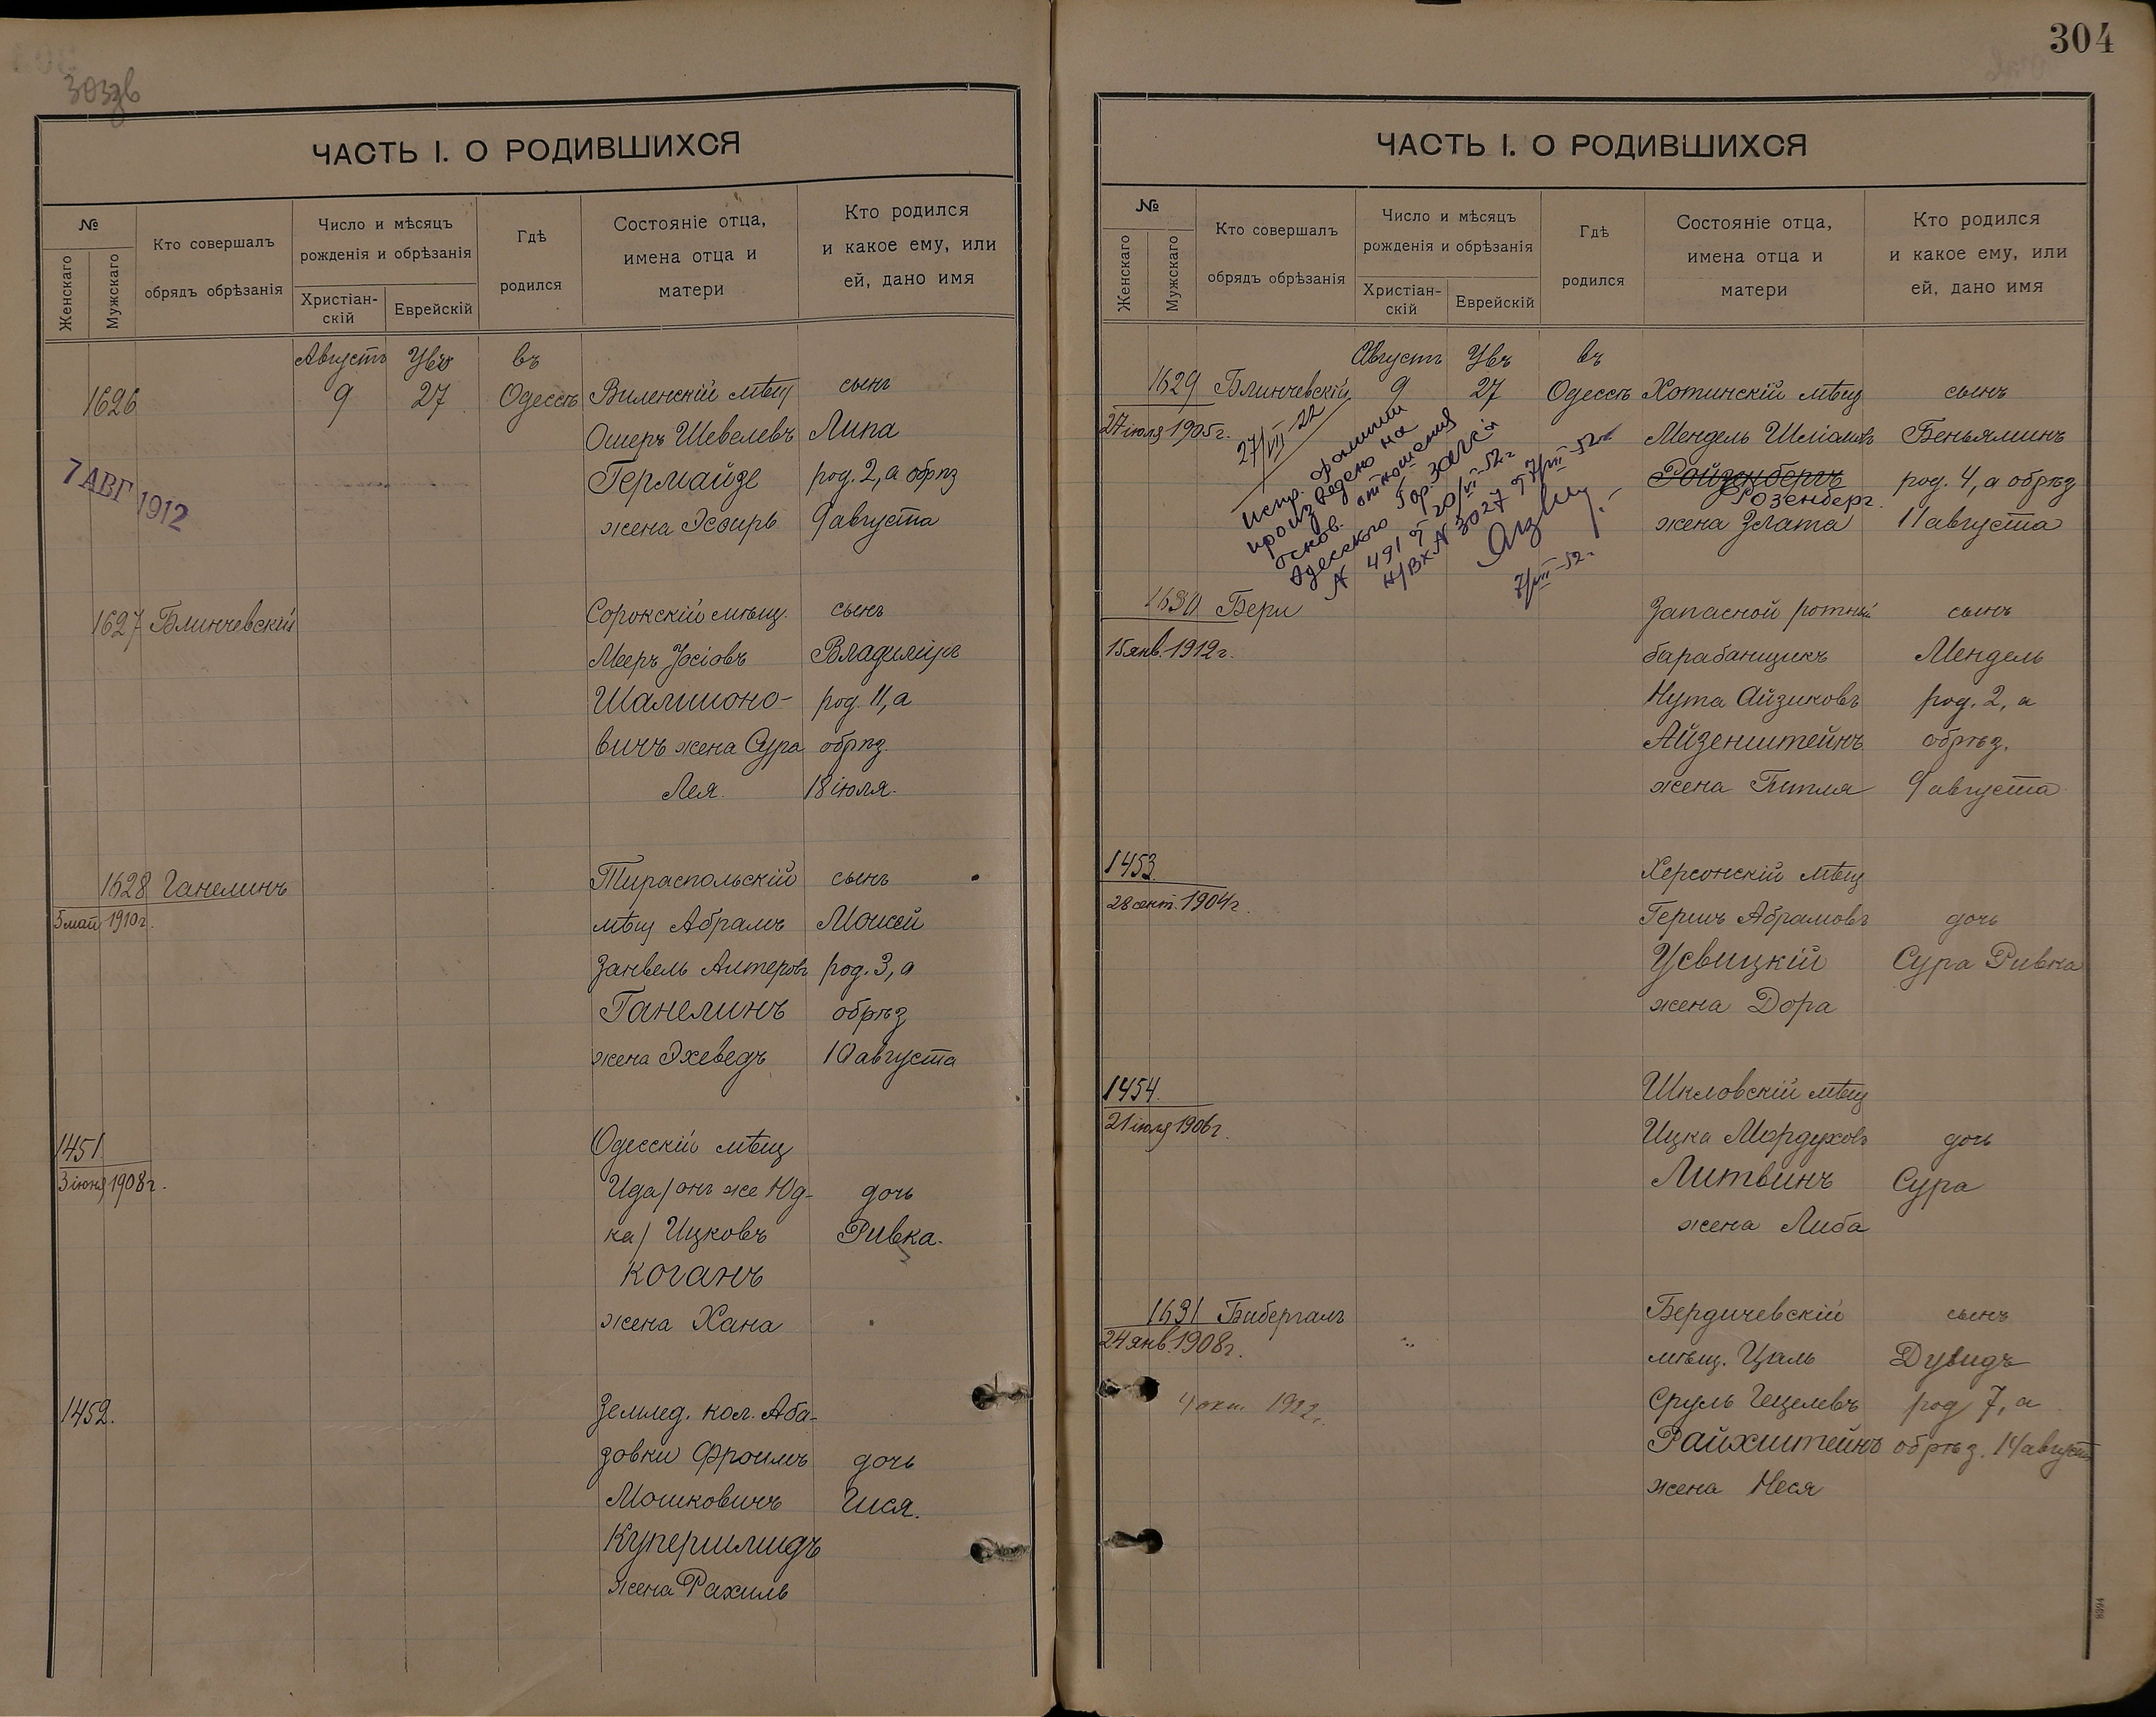 303зв
ЧАСТЬ I. О РОДИВШИХСЯ
№
Женскаго
Мужскаго
Кто совершалъ
обрядъ обрѣзанія
Число и мѣсяцъ
рожденія и обрѣзанія
Христіан-
скій
Еврейскій
Гдѣ
родился
Состояніе отца,
имена отца и
матери
Кто родился
и какое ему, или
ей, дано имя
Августъ въ
1626 9 27 Одессѣ Виленскій мѣщ сынъ
Ошеръ Шевелевъ Липа
7 АВГ 1912
Гермайзе род. 2, а обрѣз
жена Эсѳирь 9 августа
1627 Блинчевскій Сорокскій мѣщ. сынъ
Мееръ Іосіовъ Владиміръ
Шалионо- род. 11, а
вичъ жена Сура обрѣз.
Лея. 18 іюля.
1628 Ганелинъ Тираспольскій сынъ
5 май 1910г. мѣщ Абрамъ Моисей
Занвель Алтеровъ род. 3, а
Ганелинъ обрѣз
жена Эхеведъ 10 августа
1451. Одесскій мѣщ
3 іюня 1908г. Ида/онъ же Юд- дочь
ка/ Ицковъ Ривка.
Коганъ
жена Хана
1452. Землед. кол. Аба-
зовки Фроимъ дочь
Мошковичъ Гися.
Купершмидъ
жена Рахиль
304
ЧАСТЬ I. О РОДИВШИХСЯ
№
Женскаго
Мужскаго
Кто совершалъ
обрядъ обрѣзанія
Число и мѣсяцъ
рожденія и обрѣзанія
Христіан-
скій
Еврейскій
Гдѣ
родился
Состояніе отца,
имена отца и
матери
Кто родился
и какое ему, или
ей, дано имя
Августъ въ
1629 Блинчевскій 9 27 Одессѣ Хотинскій мѣщ сынъ
27 іюля 1905г. Мендель Беньяминъ
Ройзенбергъ род. 4, а обрѣз
Розенберг.
жена Злата 11 августа
27/VII-22
испр. фамилии
произведено на
основ. отношения
Одесского Гор. ЗАГСа
N 491 от 20/VI-52г
Н/Вх. N 3027 от 7/VII-52г
7/VII-52г
1630 Бери Запасной ротный сынъ
15 янв. 1912г. барабанщикъ Мендель
Нута Айзиковъ род. 2, а
Айзенштейнъ обрѣз.
жена Гитля 9 августа
1453. Херсонскій мѣщ
28 сент. 1904г. Гершъ Абрамовъ дочь
Усвицкій Сура Ривка
жена Дора
1454. Шкловскій мѣщ
21 іюля 1906г. Ицка Мордуховъ дочь
Литвинъ Сура
жена Либа
1631 Бибергалъ Бердичевскій сынъ
24 янв. 1908г. мѣщ. Цаль Дувидъ
4 окт. Сруль Гецелевъ род 7, а
Райхштейнъ обрѣз. 14 август
жена Неся
8394